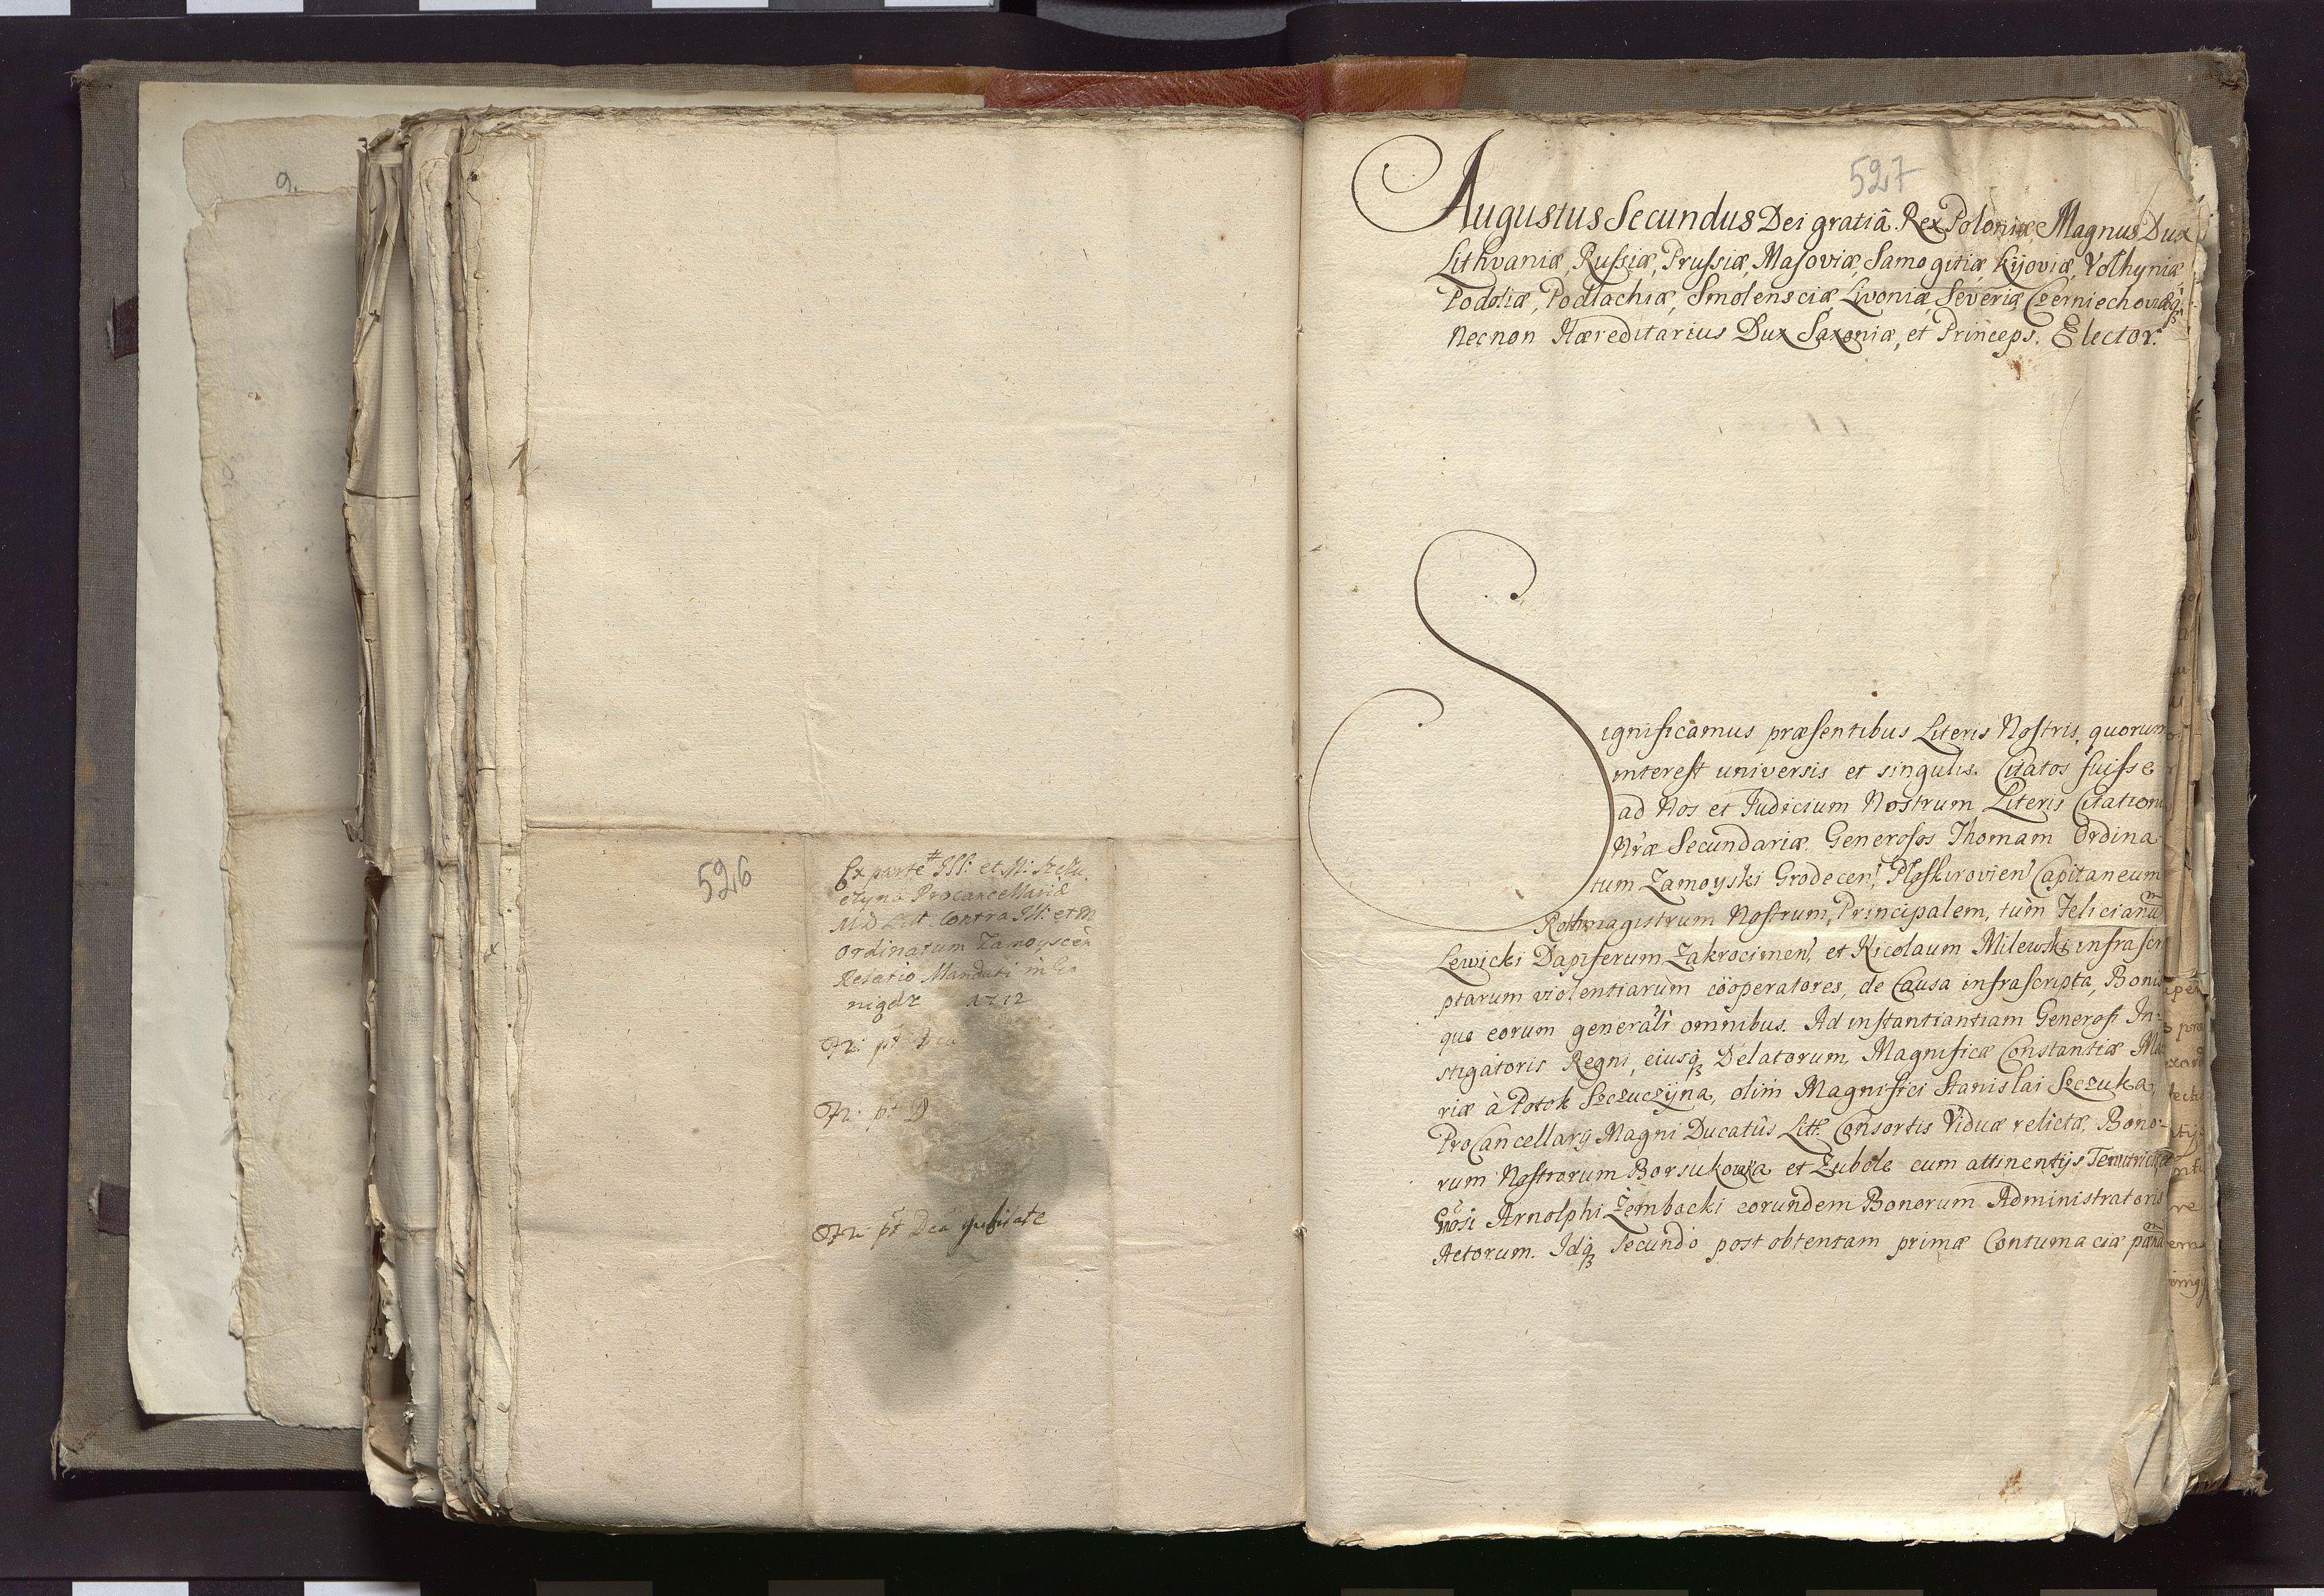 9.
526
Ex parte Ill: et M: Szczu
czyna Procancellariæ
M D Litt. Contra Ill: et M
Ordinatum Zamoyscen
Relatio Mandati in
1712
Fr: pt Dca
Fr: pt D
Fr: pt Dca
527
Augustus Secundus Dei gratiâ Rex Poloniæ, Magnus Dux
Lithvaniæ, Russiæ, Prussiæ, Masoviæ, Samogitiæ, Kijoviæ, Volhyniæ
Podoliæ, Podlachiæ, Smolensciæ Livoniæ, Severiæ, Czerniechoviæq
Necnon Hæreditarius Dux Saxoniæ, et Princeps. Elector.
Significamus præsentibus Literis Nostris, quorum
interest universis et singulis. Citatos fuisse
ad Nos et Judicium Nostrum Literis Citationi
Nræ Secundariæ. Generosos Thomam Ordina
tum Zamoyski Grodecen, Ploskirovien Capitaneum
Rothmagistrum Nostrum, Principalem, tùm Felicianu
Lewicki Dapiferum Zakrocimen, et Nicolaum Milewski infrascri
ptarum violentiarum cöoperatores, de Causa infrascripta, Bonis
que eorum generali omnibus. Ad instantiantiam Generosi In-
stigatoris Regni, eiusq Delatorum, Magnificæ Constantiæ Ma
riæ à Potok Szczuczÿna, olim Magnifici Stanislai Szczuka,
ProCancellarij Magni Ducatûs Litt. Consortis Viduæ relictæ, Bono-
rum Nostrorum Borsukowka et Zubole cum attinentijs Tenutricis, et
Gnosi Arnolphi Zembocki eorundem Bonorum Administratoris
Actorum. Idq Secundo post obtentam primæ Contumaciæ pænã